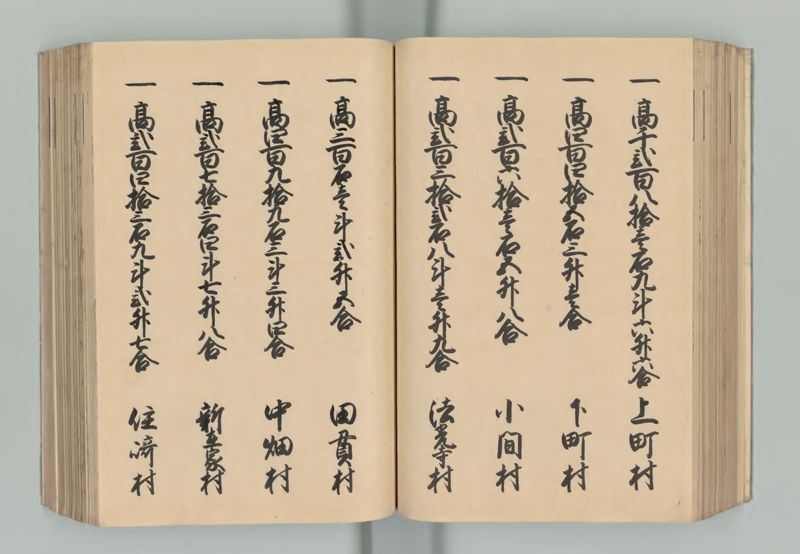 一 高千弐百八拾壱石九斗六升六合 上町村
一 高四百四拾五石三升壱合 下町村
一 高弐百六拾壱石五升八合 小間村
一 高弐百三拾弐石八斗壱升九合 法光寺村
一 高三百石壱斗弐升五合 田貫村
一 高四百九拾九石三斗三升四合 中畑村
一 高弐百七拾三石四斗七升八合 新在家村
一 高弐百四拾三石九斗弐升七合 住崎村